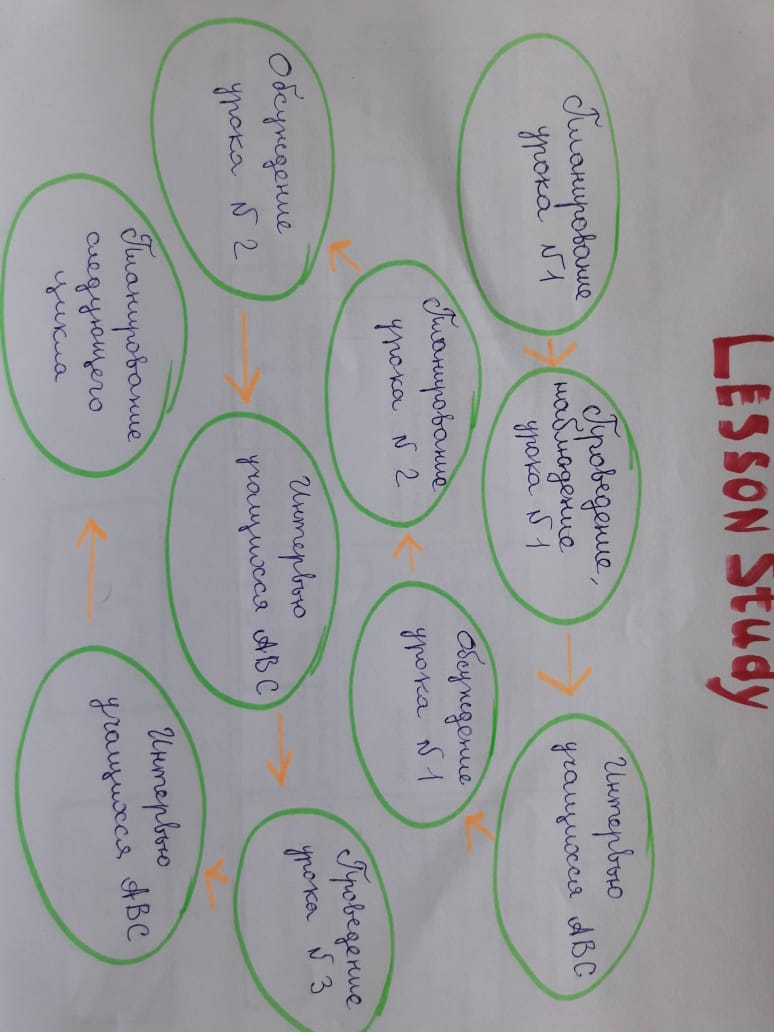 LESSON Study
Планирование
урока № 1
Проведение,
наблюдение
урока № 1
Интервью
учащихся АВС
Обсуждение
урока № 1
Планирование
урока № 2
Обсуждение
урока № 2
Интервью
учащихся АВС
Проведение
урока № 3
Интервью
учащихся АВС
Планирование
следующего
цикла